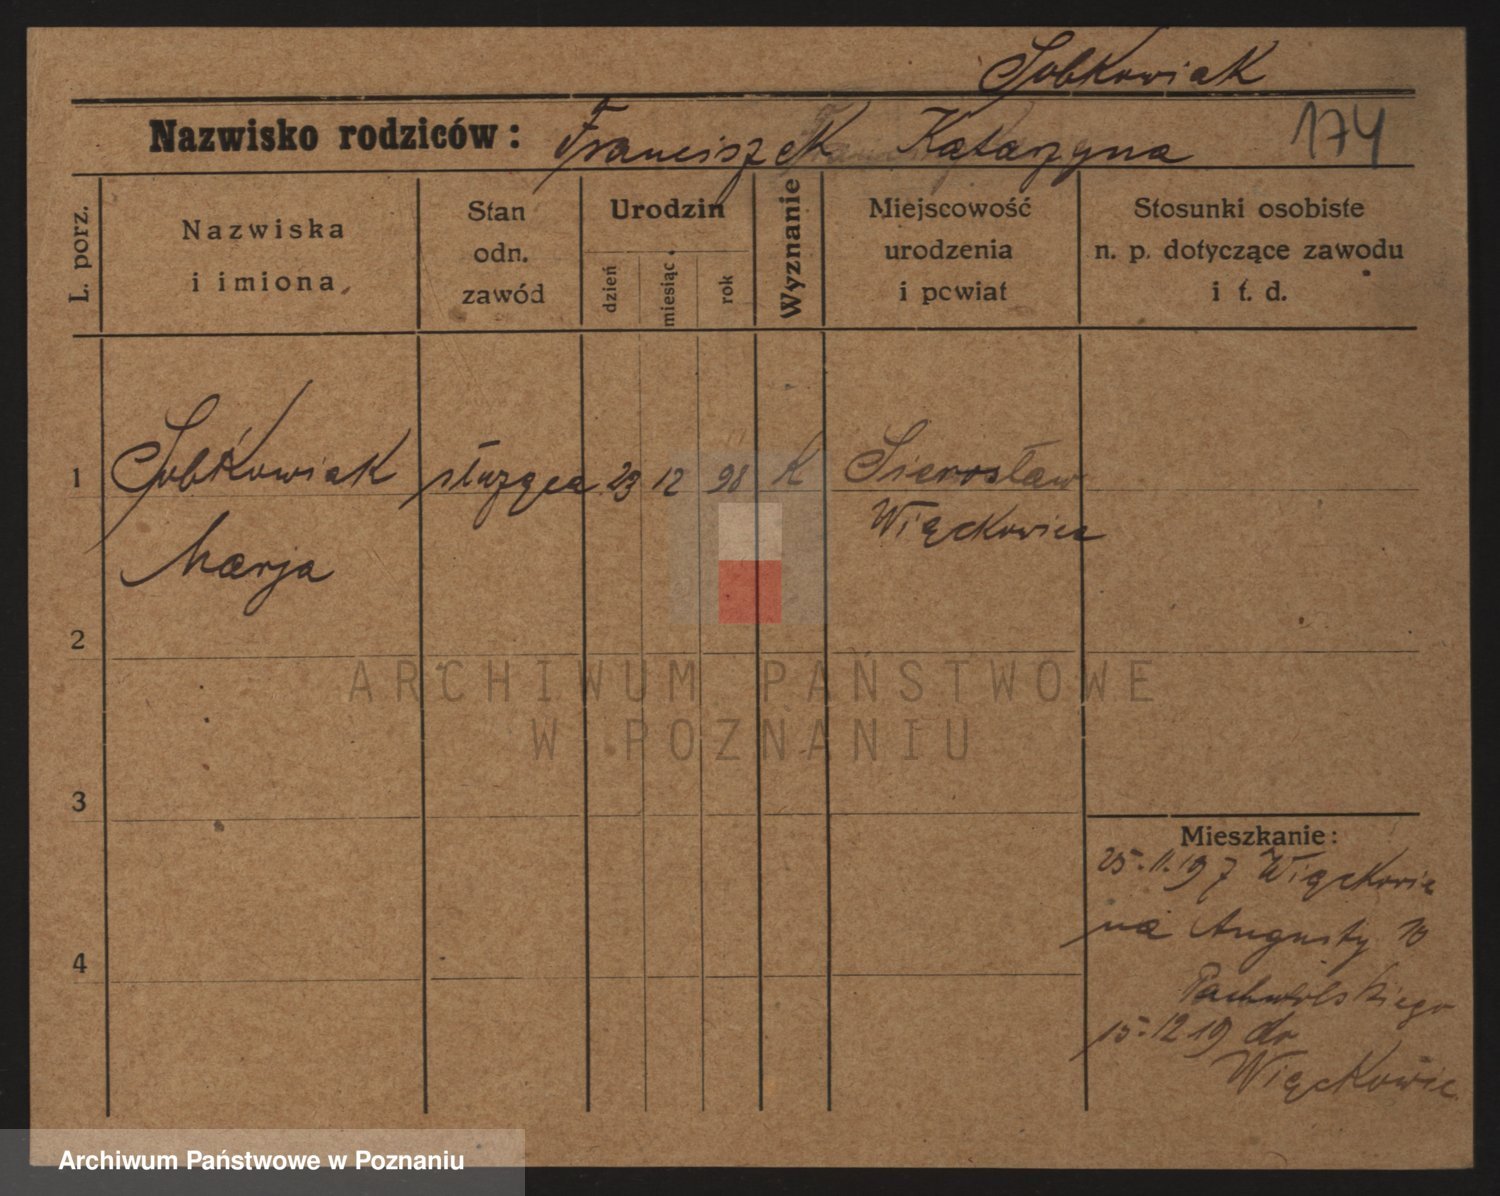 Sobkowiak
Nazwisko rodziców: Franciszek Katarzyna 174
L. porz.
Nazwiska
i imiona
Stan
odn.
zawód
Urodzin
dzień
miesiąc
rok
Wyznanie
Miejscowość
urodzenia
i powiat
Stosunki osobiste
n. p. dotyczące zawodu
i t. d.
1 Sobkowiak służąca 23 12 98 K Sierosław
Więckowice
Marja
2
3
4
ARCHIWUM PAŃSTWOWE
W POZNANIU
Mieszkanie:
25.11.19 z Więckowic
na Augusty 10
15.12 19 do
Więckowic
Archiwum Państwowe w Poznaniu